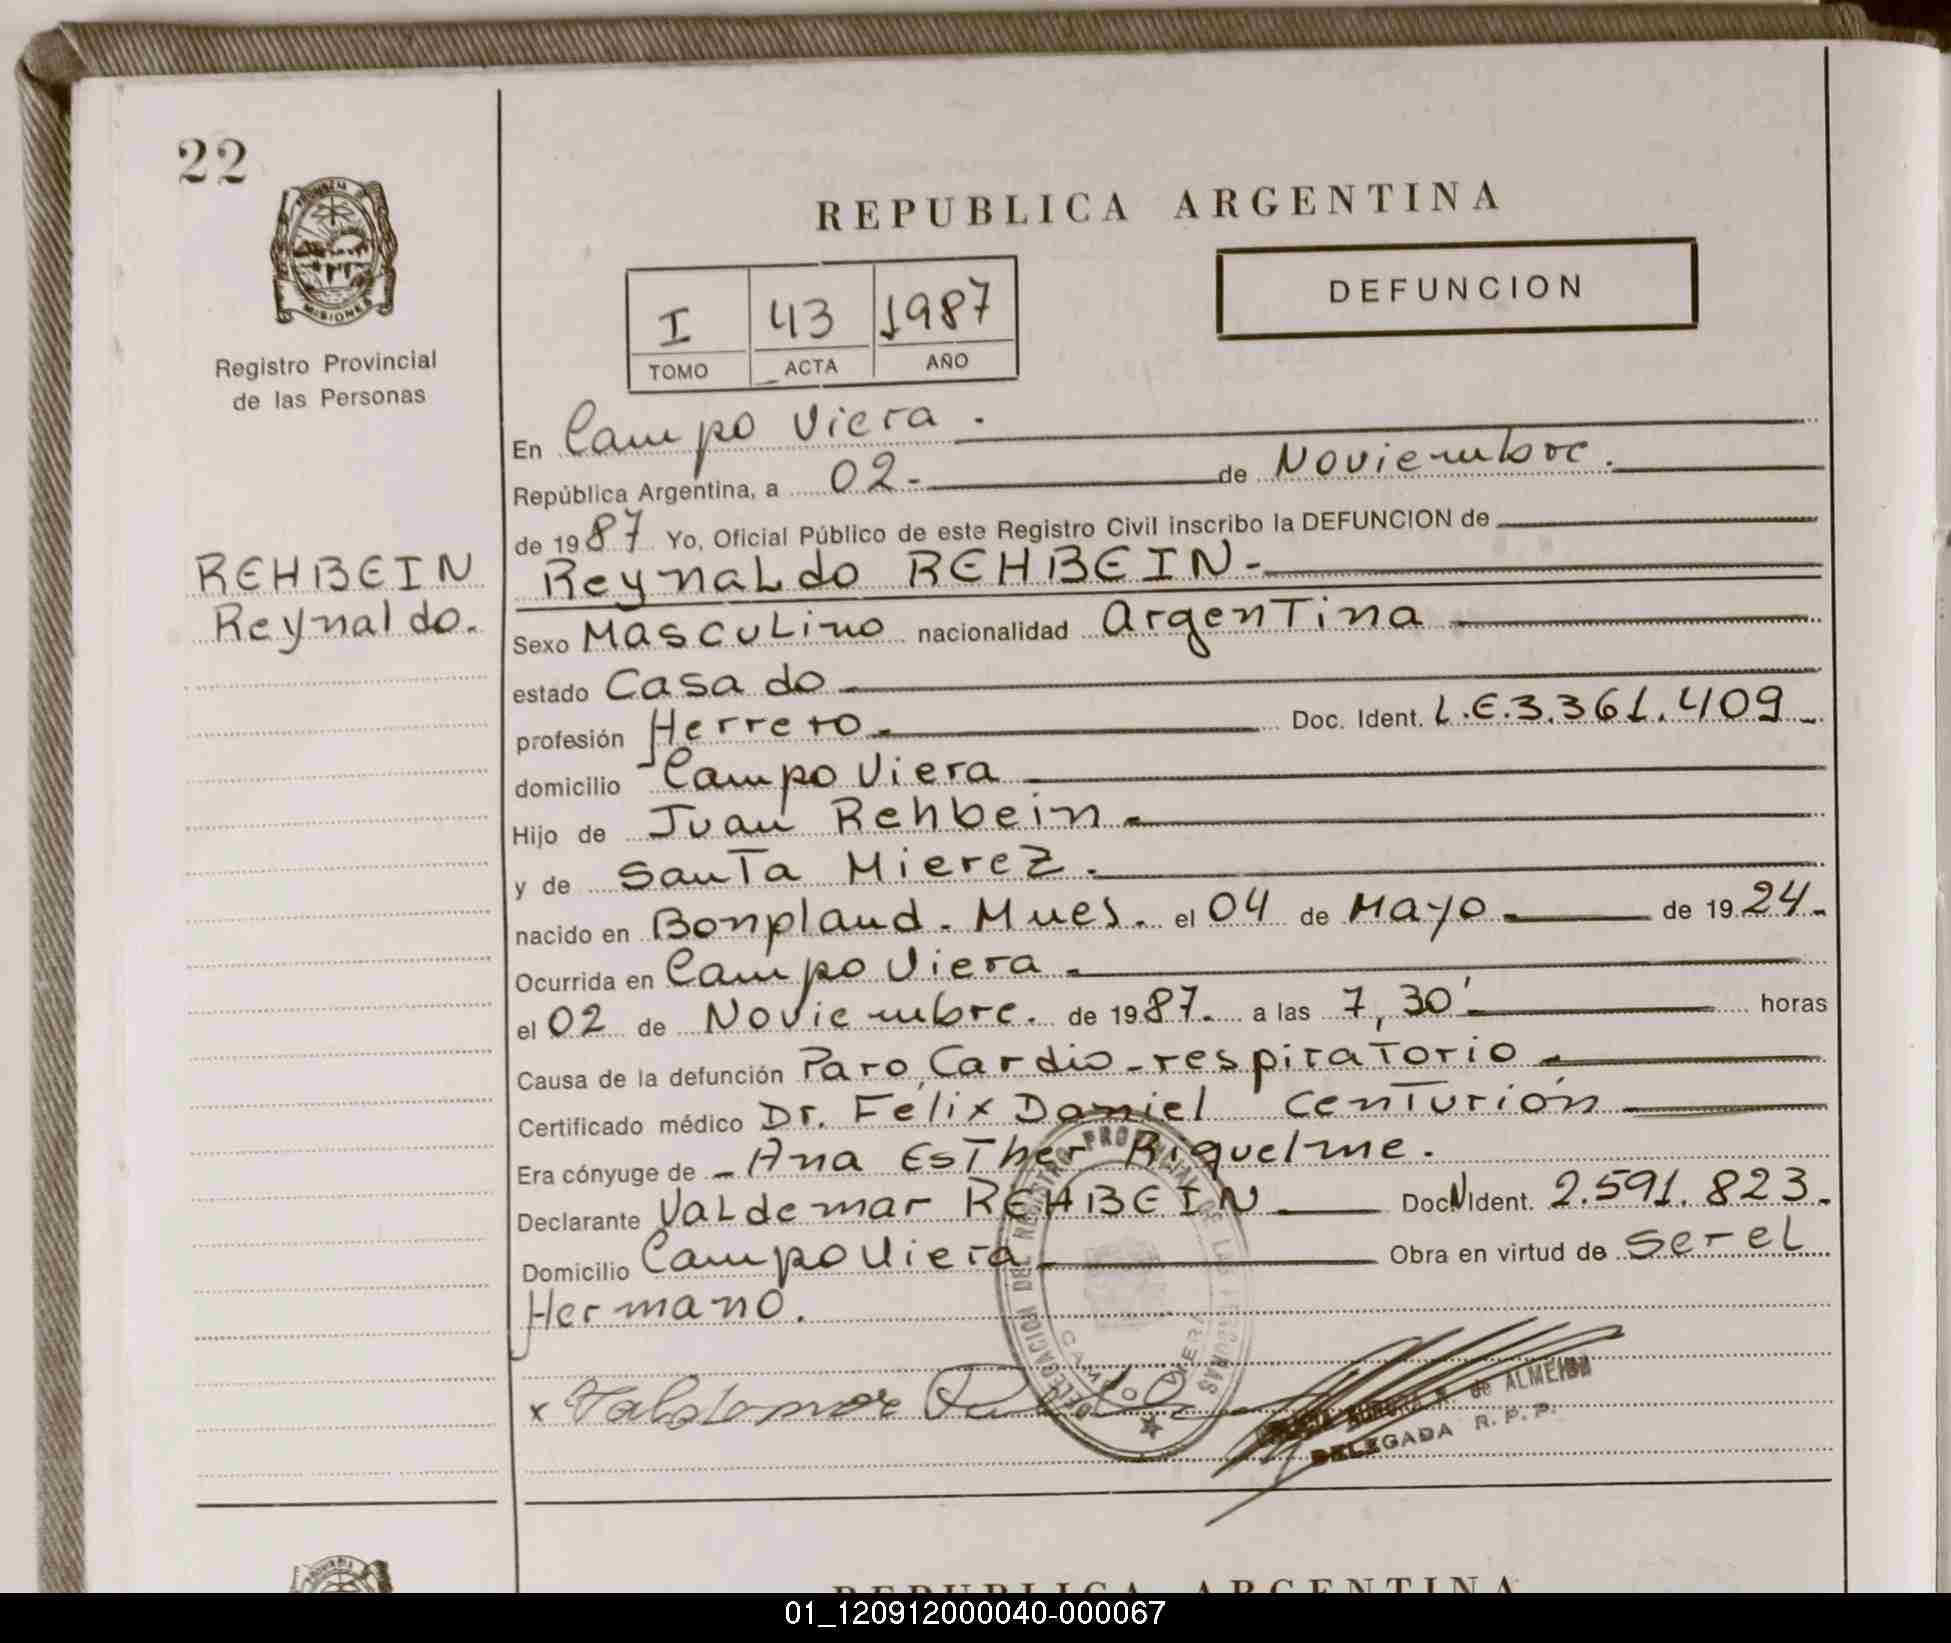 22
PROVINCIA DE
MISIONES
Registro Provincial
de las Personas
REHBEIN
Reynaldo.
REPUBLICA ARGENTINA
I 43 1987
TOMO ACTA AÑO
DEFUNCION
En Campo Viera.
República Argentina, a 02- de Noviembre.
de 1987 Yo, Oficial Público de este Registro Civil inscribo la DEFUNCION de
Reynaldo REHBEIN-
Sexo Masculino nacionalidad Argentina
estado Casado
profesión Herrero Doc. Ident. L.E.3.361.409
domicilio Campo Viera
Hijo de Juan Rehbein
y de Santa Mierez.
nacido en Bonpland. Mnes. el 04 de Mayo de 1924.
Ocurrida en Campo Viera
el 02 de Noviembre. de 1987. a las 7,30' horas
Causa de la defunción Paro Cardio-respiratorio
Certificado médico Dr. Félix Daniel Centurión
Era cónyuge de - Ana Esther Riquelme.
Declarante Valdemar REHBEIN Doc. Ident. 2.591.823.
Domicilio Campo Viera Obra en virtud de ser el
Hermano.
DELEGACION DEL REGISTRO PROVINCIAL DE LAS PERSONAS
CAMPO VIERA
x Valdemar
de ALMEIDA
DELEGADA R.P.P.
REPUBLICA ARGENTINA
01_120912000040-000067